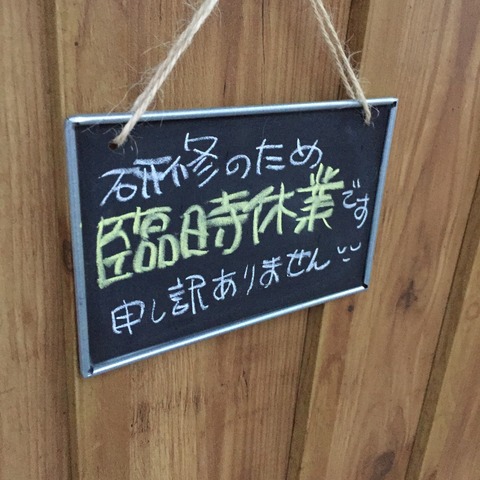 研修のため
臨時休業です
申し訳ありません